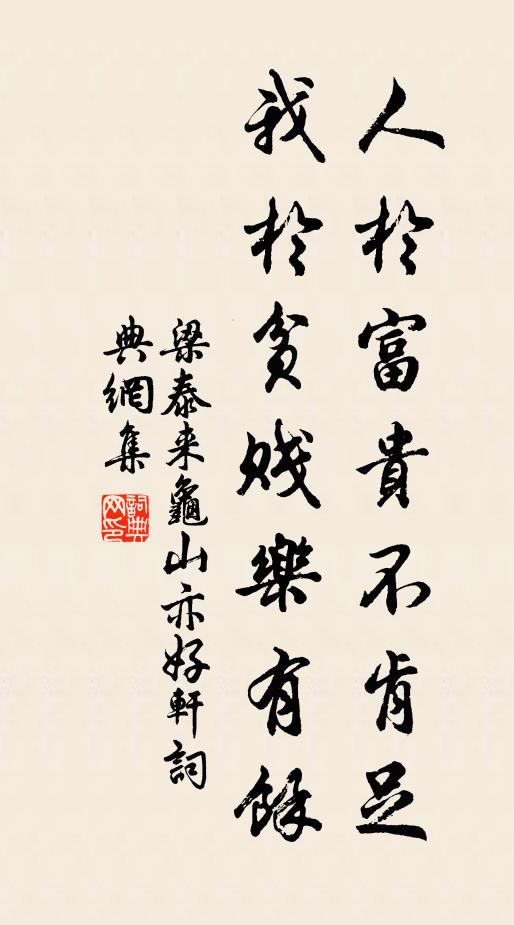 人於富貴不肯足
我於貧賤樂有餘
梁泰来龜山亦好軒詞
典網集
詞典网印